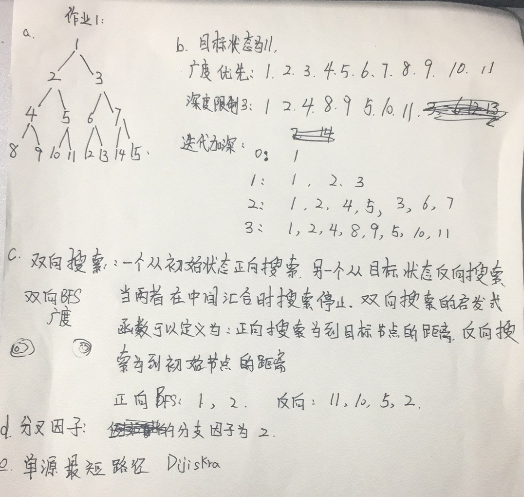 作业1:
a.
1
2 3
4 5 6 7
8 9 10 11 12 13 14 15.
b. 目标状态为11.
广度优先: 1. 2. 3. 4. 5. 6. 7. 8. 9. 10. 11
深度限制3: 1 2. 4. 8. 9 5. 10. 11.
迭代加深:
0: 1
1: 1, 2. 3
2: 1, 2, 4, 5, 3, 6, 7
3: 1, 2, 4, 8, 9, 5, 10, 11
c. 双向搜索: 一个从初始状态正向搜索. 另一个从目标状态反向搜索
双向BFS
广度
当两者在中间汇合时搜索停止. 双向搜索的启发式
函数可以定义为: 正向搜索为到目标节点的距离. 反向搜
索为到初始节点的距离
正向BFS: 1, 2. 反向: 11, 10, 5, 2.
d. 分叉因子: 的分支因子为2.
e. 单源最短路径 Dijiskra